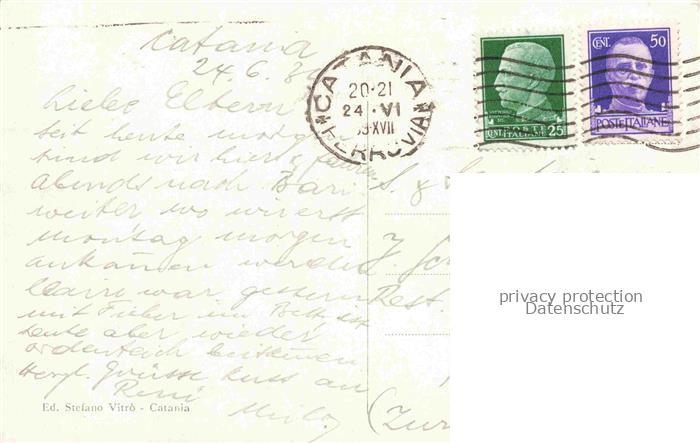 Catania
24. 6. 39
Liebe Eltern
seit heute morgen
sind wir hier & fahren
abends nach Bari
weiter wo wir erst
montag morgen
ankommen werden
war gestern
mit Fieber im Bett ist
heute aber wieder
ordentlich
Herzl. Grüsse Kuss an
René
Ed. Stefano Vitrò - Catania
CATANIA
20-21
24 · VI
39 XVII
FERROVIA
POSTE ITALIANE
CENT. 25
CENT. 50
POSTE ITALIANE
S. &
Rest.
(Zur
privacy protection
Datenschutz